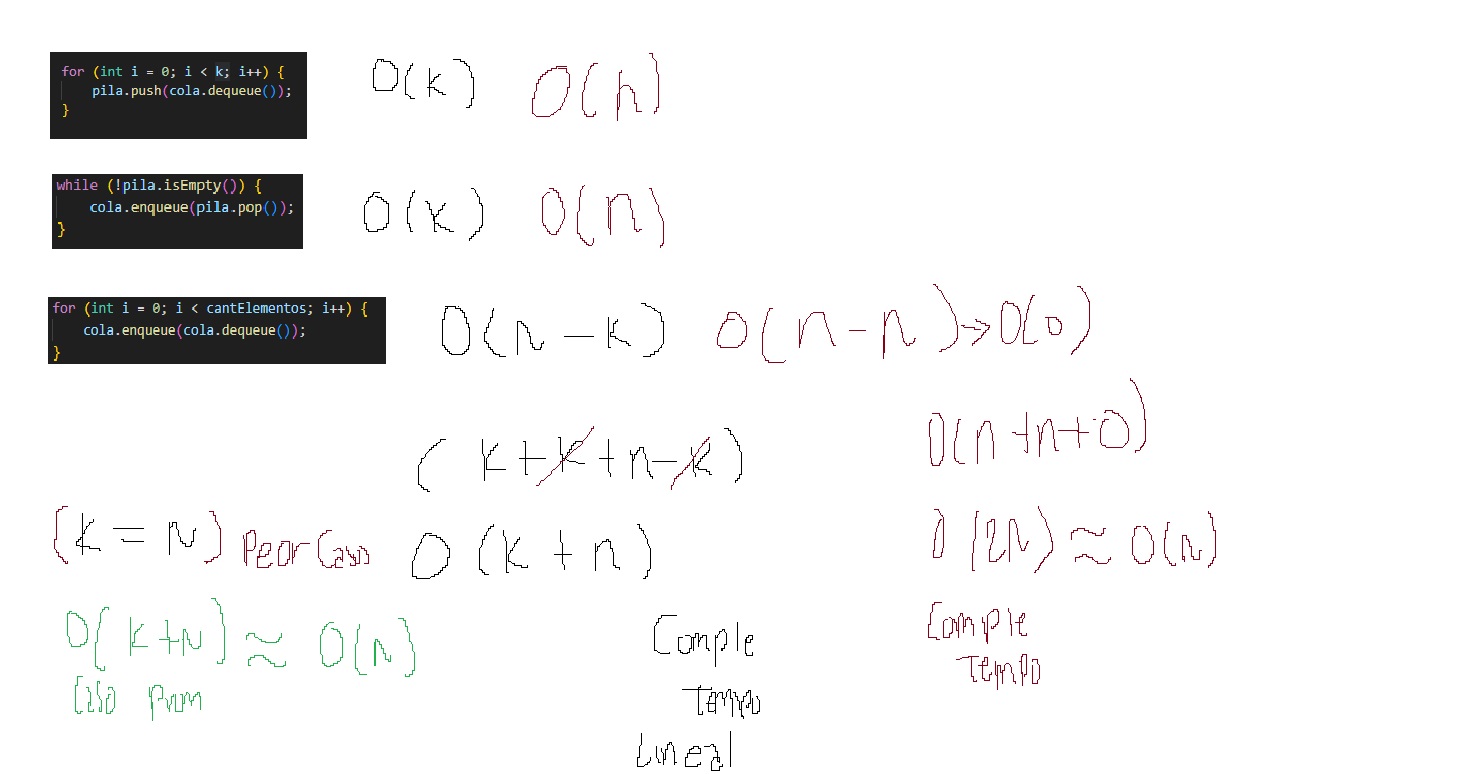 for (int i = 0; i < k; i++) {
pila.push(cola.dequeue());
}
O(k) O(n)
while (!pila.isEmpty()) {
cola.enqueue(pila.pop());
}
O(k) O(n)
for (int i = 0; i < cantElementos; i++) {
cola.enqueue(cola.dequeue());
}
O(n-k) O(n-n)→O(0)
(k+k+n-k)
O(n+n+0)
(k=N) Peor Caso
O(k+n)
O(2N)≈O(N)
O(k+N)≈O(N)
Caso Prom
Comple
Tempo
Lineal
Comple
Tempo